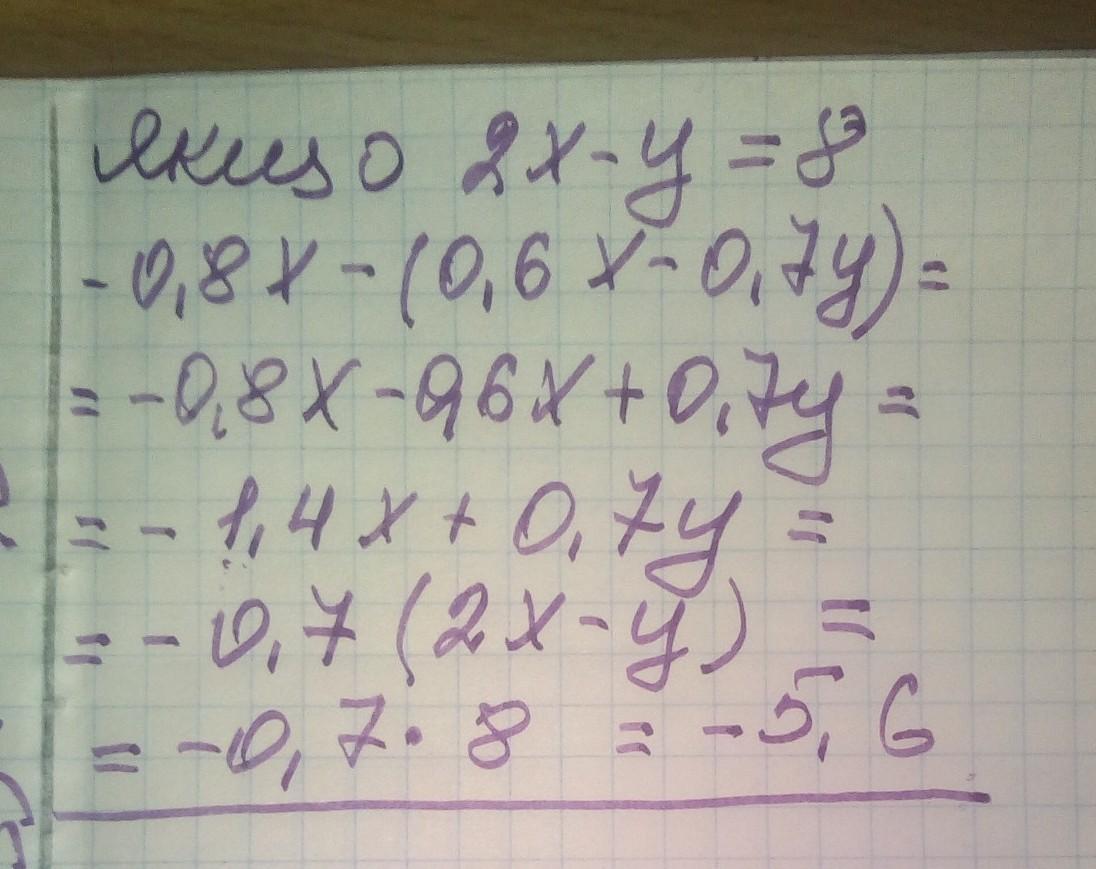 Якщо 2x-y=8
-0,8x-(0,6x-0,7y)=
=-0,8x-0,6x+0,7y=
=-1,4x+0,7y=
=-0,7(2x-y)=
=-0,7·8=-5,6